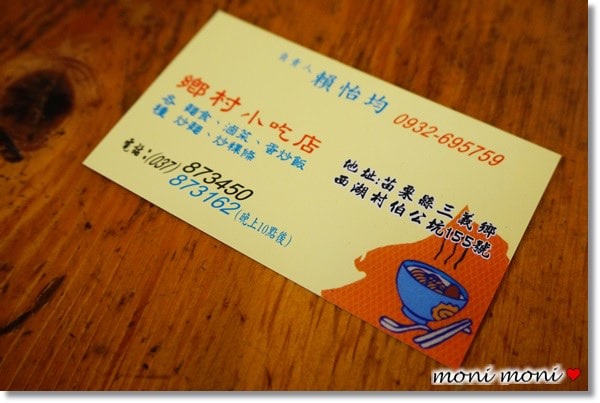 負責人 賴怡均
0932-695759
鄉村小吃店
各種 麵食、滷菜、蛋炒飯
炒麵、炒粿條
電話:(037)873450
873162(晚上10點後)
地址:苗栗縣三義鄉
西湖村伯公坑155號
moni moni